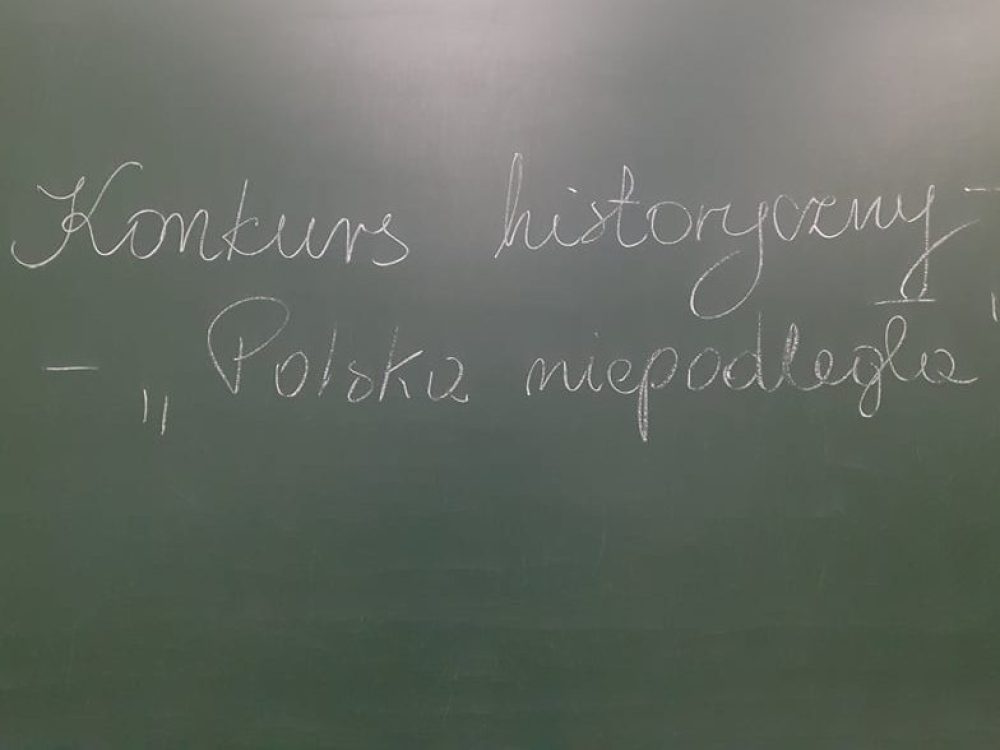 Konkurs historyczny -
- „Polska niepodległa"